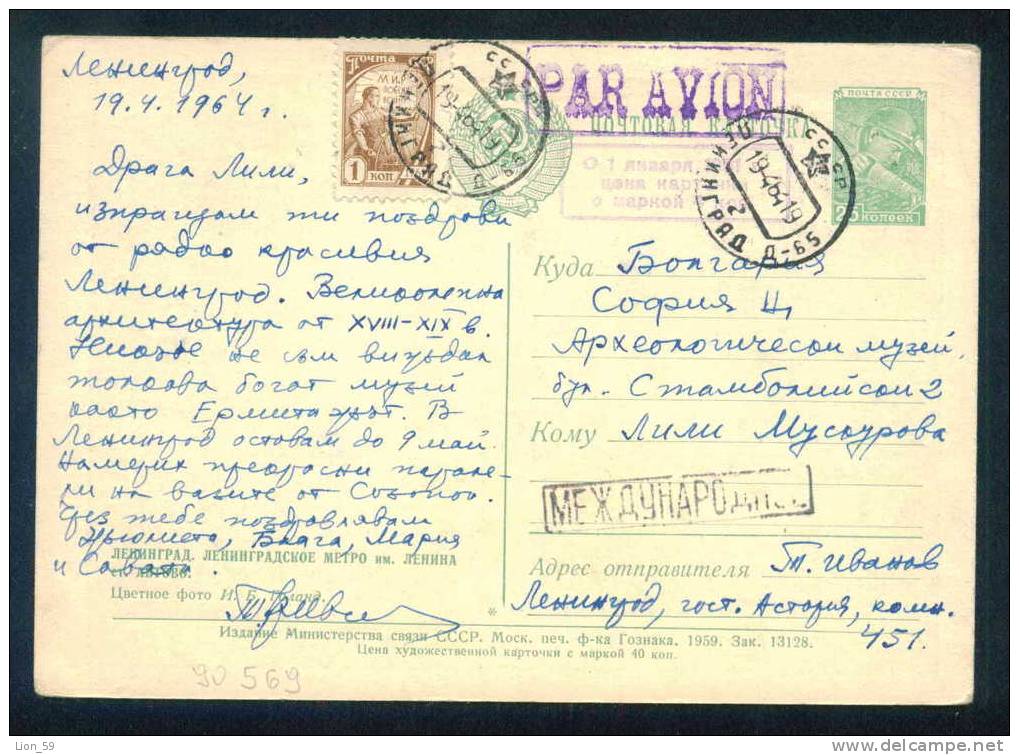 Ленинград,
19.4.1964 г.
Драга Лили,
изпращам ти поздрави
от рядко красивия
Ленинград. Великолепна
архитектура от XVIII-XIX в.
Никога не съм виждал
толкова богат музей
както Ермитажът. В
Ленинград оставам до 9 май.
Намерих прекрасни парале-
ли на вазите от Созопол.
Чрез тебе поздравявам
Блага, Мария
и
ЛЕНИНГРАД. ЛЕНИНГРАДСКОЕ МЕТРО им. ЛЕНИНА
Цветное фото И. Б.
почта
МИР
1 КОП
СССР
ЛЕНИНГРАД
19-4-64-19
PAR AVION
ПОЧТОВАЯ КАРТОЧКА
С 1 января
цена карточки
с маркой
СССР
ЛЕНИНГРАД 2 Д-65
19-4-64-19
ПОЧТА СССР
25 копеек
Куда България
София Ц,
Археологически музей,
бул. Стамболийски 2
Кому Лили Мускурова
МЕЖДУНАРОДНОЕ
Адрес отправителя Т. Иванов
Ленинград, гост. Астория, комн.
451.
*
Издание Министерства связи СССР. Моск. печ. ф-ка Гознака. 1959. Зак. 13128.
Цена художественной карточки с маркой 40 коп.
90 569
Lion_59
www.delcampe.net